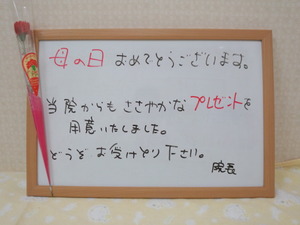 母の日 おめでとうございます。
当院からも ささやかな プレゼントを
用意いたしました。
どうぞ お受けとり 下さい。
院長